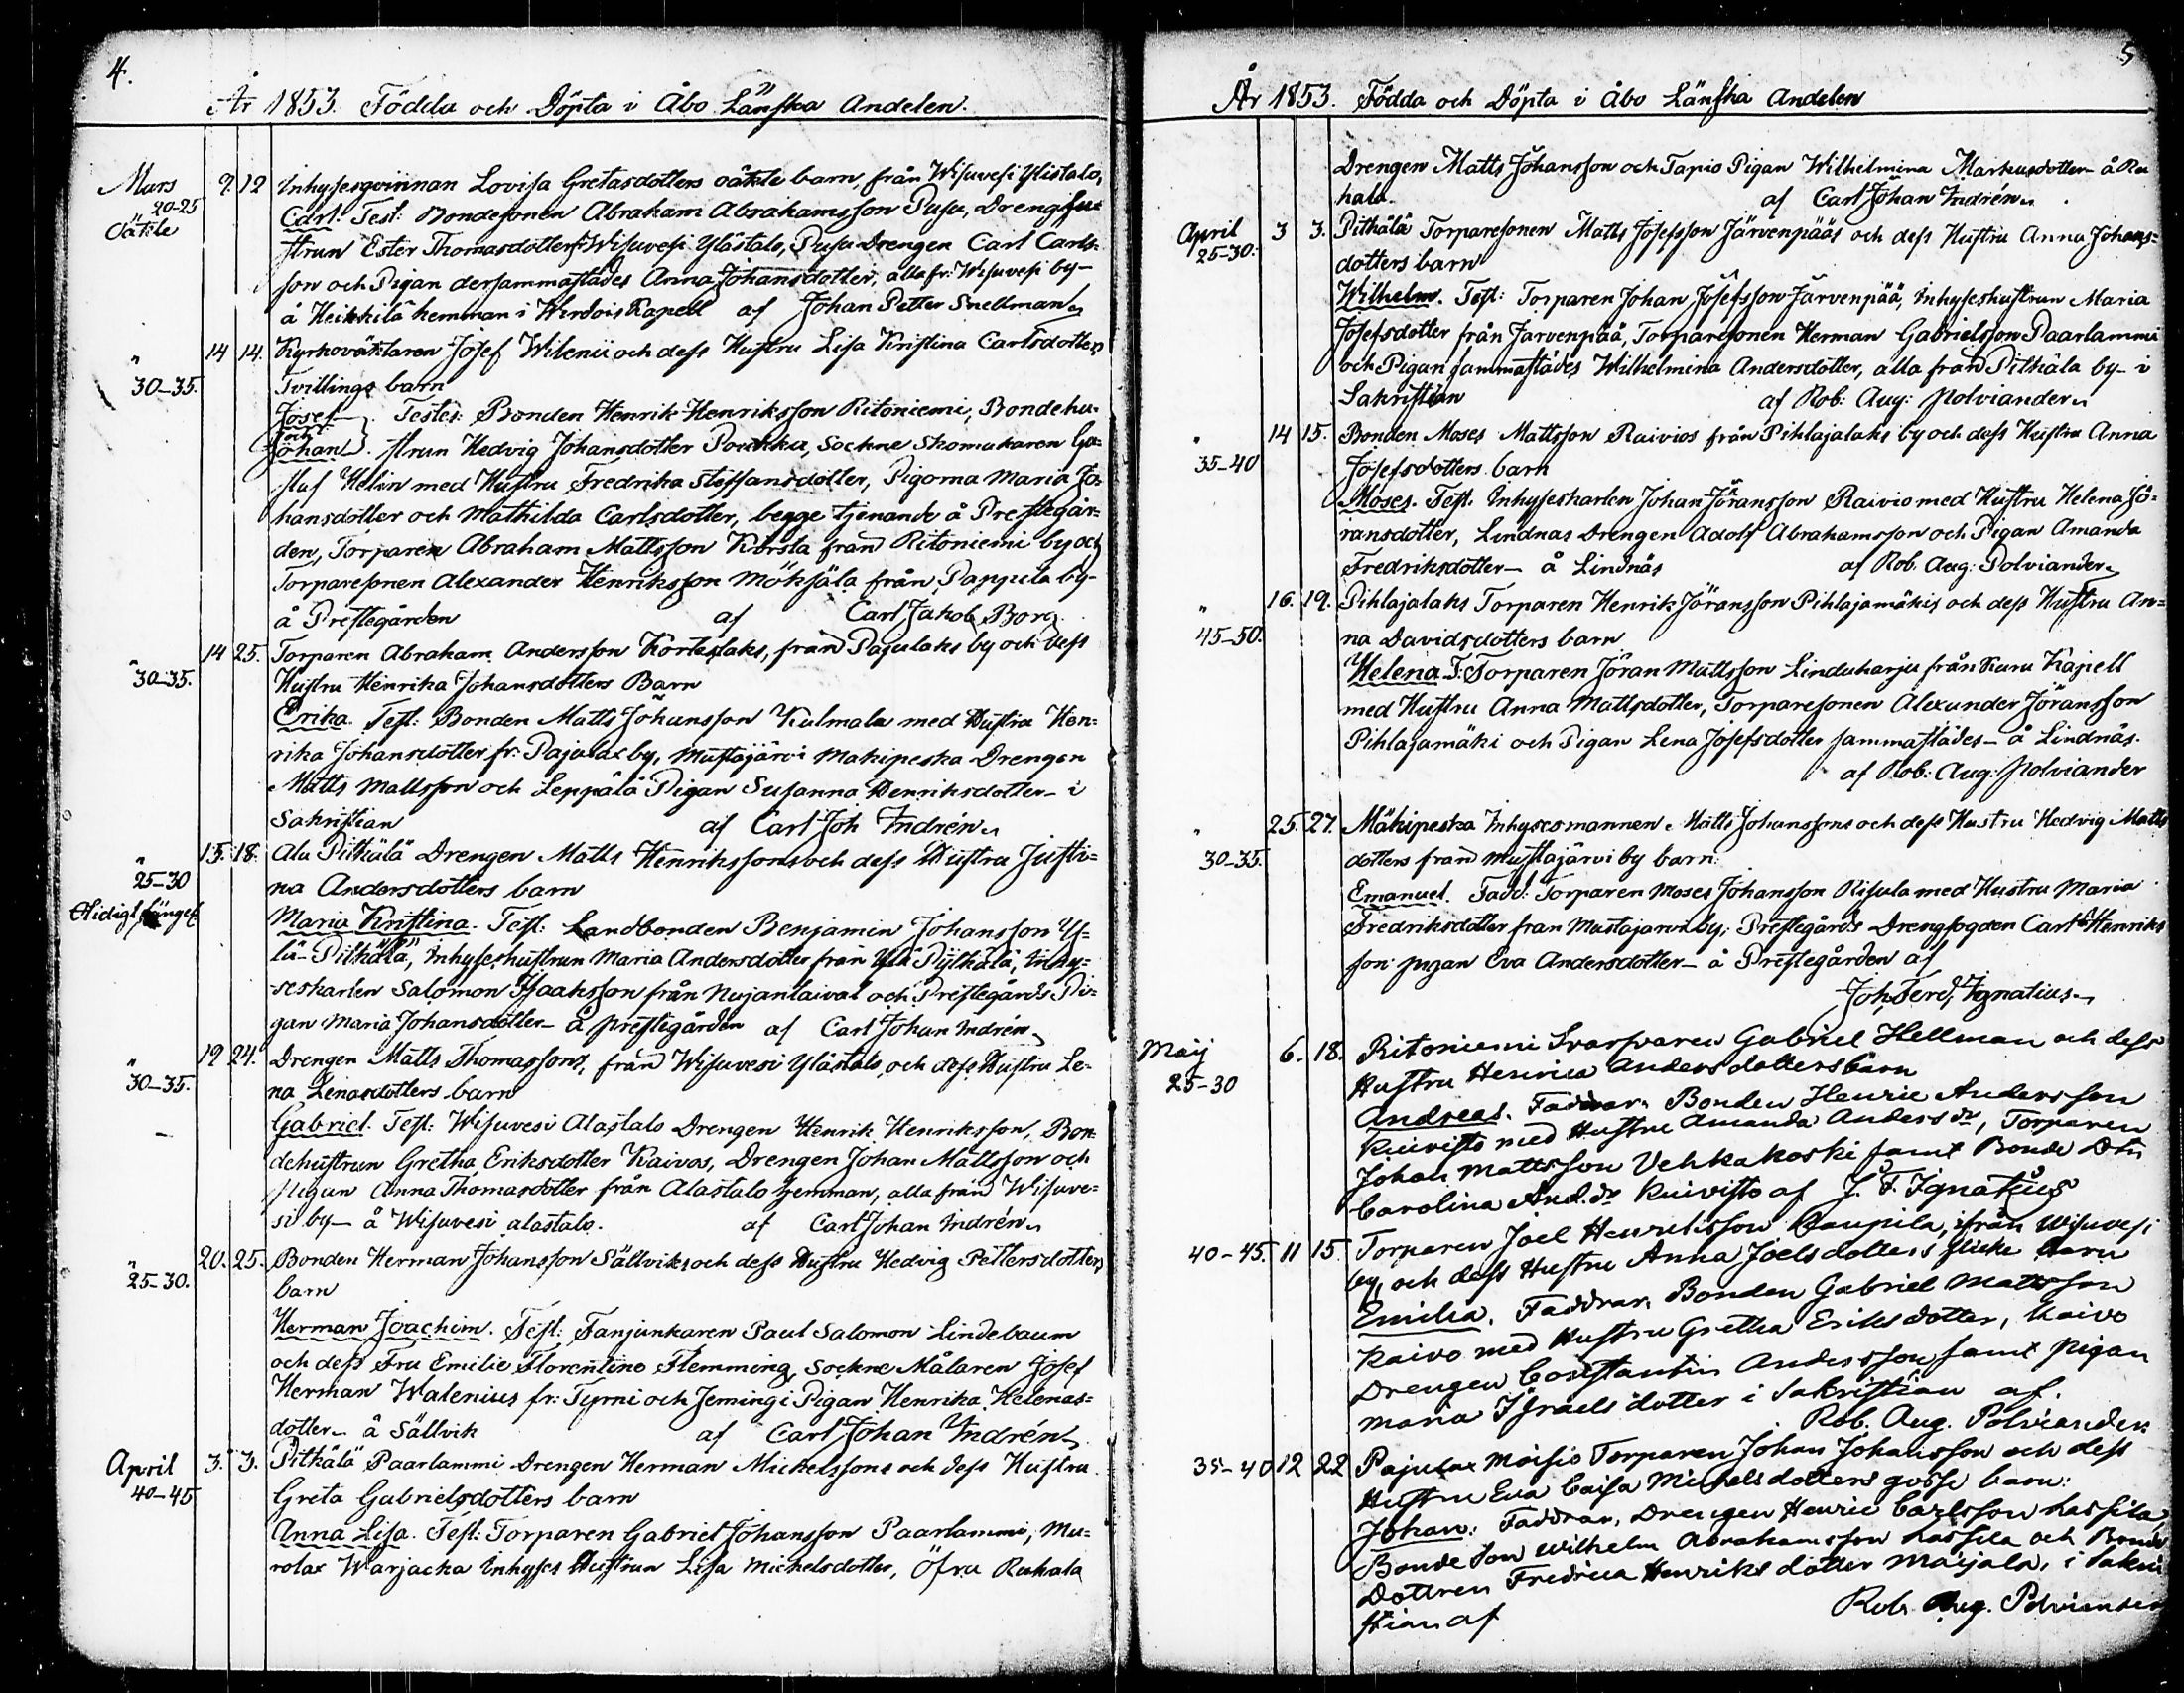 4.
År 1853. Födda och Döpta i Åbo Länska Andelen.
Mars 9. 12 Inhysesqvinnan Lovisa Gretasdotters oäkta barn, från Wisuvesi Ylistalo,
20-25 Oäkte
Carl. Test: Bondesonen Abraham Abrahamsson Pusu, Drenghu-
strun Ester Thomasdotter Wisuvesi Ylästalo, Pusu Drengen Carl Carls-
son och Pigan dersammastädes Anna Johansdotter, alla fr: Wisuvesi by-
å Heikkilä hemman i Wirdois Kapell af Johan Petter Snellman
" 30-35. 14 14. Kyrkoväktaren Josef Wilenii och dess Hustru Lisa Kristina Carlsdotters
Tvillings barn
Josef Testes: Bonden Henrik Henriksson Ritoniemi, Bondehu-
och Johan. strun Hedvig Johansdotter Pouhka, Sockne Skomakaren Gu-
staf Helin med Hustru Fredrika Steffansdotter, Pigorna Maria Jo-
hansdotter och Mathilda Carlsdotter, begge tjenande å Prestegår-
den, Torparen Abraham Mattsson Korsta från Ritoniemi by och
Torparesonen Alexander Henriksson Möksälä från Pappula by-
å Prestegården af Carl Jakob Borg.
" 30-35. 14 25. Torparen Abraham Andersson Korteslaks, från Pajulaks by och dess
Hustru Henrika Johansdotters Barn
Erika. Test: Bonden Matts Johansson Kulmala med Hustru Hen-
rika Johansdotter fr: Pajulax by, Mustajärvi Makipeska Drengen
Matts Mattsson och Leppälä Pigan Susanna Henriksdotter- i
Sakristian af Carl Joh Indrén
" 25-30 15. 18. Ala Pitkälä Drengen Matts Henrikssons och dess Hustru Justi-
na Andersdotters barn
Maria Kristina. Test: Landbonden Benjamin Johansson Y-
lä-Pitkälä, Inhyseshustrun Maria Andersdotter från Ylä Pytkälä, Inhy-
seskarlen Salomon Isaaksson från Nujanlaival och Prestegårds Pi-
gan Maria Johansdotter- å prestegården af Carl Johan Indrén
" 30-35. 19 24. Drengen Matts Thomassons, från Wisuvesi Ylästalo, och dess Hustru Le-
na Lenasdotters barn
Gabriel. Test: Wisuvesi Alastalo Drengen Henrik Henriksson, Bon-
dehustrun Gretha Eriksdotter Kaivos, Drengen Johan Mattsson och
pigan Anna Thomasdotter från Alastalo hemman, alla från Wisuve-
si by- å Wisuvesi alastalo. af Carl Johan Indrén
" 25-30. 20. 25. Bonden Herman Johansson Sällviks och dess Hustru Hedvig Pettersdotters
barn
Herman Joachim. Test: Fanjunkaren Paul Salomon Lindebaum
och dess Fru Emilie Florentine Flemming, Sockne Målaren Josef
Herman Walenius fr: Tyrni och Jemingi Pigan Henrika Helenas-
dotter- å Sällvik af Carl Johan Indrén
April 40-45 3. 3. Pitkälä Paarlammi Drengen Herman Michelssons och dess Hustru
Greta Gabrielsdotters barn
Anna Lisa. Test: Torparen Gabriel Johansson Paarlammi, Mu-
rolax Warjacka Inhyses Hustrun Lisa Michelsdotter, Öfra Ruhala
5
År 1853. Födda och Döpta i Åbo Länska Andelen
Drengen Matts Johansson och Tapio Pigan Wilhelmina Markusdotter- å Ru
hala. af Carl Johan Indrén
April 25-30. 3 3. Pitkälä Torparesonen Matts Josefsson Järvenpääs och dess Hustru Anna Johans-
dotters barn
Wilhelm. Test: Torparen Johan Josefsson Järvenpää, Inhyseshustrun Maria
Josefsdotter från Jarvenpää, Torparesonen Herman Gabrielsson Paarlammi
och Pigan sammastädes Wilhelmina Andersdotter, alla från Pitkäla by- i
Sakristian af Rob: Aug: Polviander
" 35-40 14 15. Bonden Moses Mattsson Raivios från Pihlajalaks by och dess Hustru Anna
Josefsdotters barn
Moses. Test. Inhyseskarlen Johan Jöransson Raivio med Hustru Helena Jö-
ransdotter, Lindnas Drengen Adolf Abrahamsson och Pigan Amanda
Fredriksdotter- å Lindnäs af Rob. Aug: Polviander
" 45-50. 16. 19. Pihlajalaks Torparen Henrik Jöransson Pihlajamäkis och dess Hustru An-
na Davidsdotters barn
Helena T: Torparen Jöran Mattsson Linduharju från Kuru Kapell
med Hustru Anna Mattsdotter, Torparesonen Alexander Jöransson
Pihlajamäki och Pigan Lena Josefsdotter sammastädes- å Lindnäs.
af Rob: Aug: Polviander
" 30-35. 25. 27. Mäkipeska Inhysesmannen Matts Johanssons och dess Hustru Hedvig Matts
dotters från Mustajärvi by barn:
Emanuel. Fadd: Torparen Moses Johansson Risula med Hustru Maria
Fredriksdotter fran Mustajärvi by; Prestegårds Drengfogden Carl Henriks
son pigan Eva Andersdotter- å Prestegården af
Joh. Ferd. Ignatius
Maij 25-30 6. 18. Ritoniemi Svarfvaren Gabriel Hellman och dess
Hustru Henrica Andersdotters barn
Andreas. Faddrar. Bonden Henric Andersson
Kuivisto med Hustru Amanda Andersdr, Torparen
Johan Mattsson Vehkakoski samt Bonde Dtr
Carolina And.dr Kuivisto af J. F. Ignatius
40-45. 11 15. Torparen Joel Henriksson Kaupila, ifrån Wisuvesi
by, och dess Hustru Anna Joelsdotters flicke barn
Emilia. Faddrar. Bonden Gabriel Mattsson
Kaivo med Hustru Gretha Eriksdotter, Kaivo
Drengen Constantin Andersson samt pigan
Maria Israelsdotter i Sakristian af.
Rob. Aug. Polviander.
35-40 12 22 Pajulax Moisio Torparen Johan Johansson och dess
Hustru Eva Caisa Michelsdotters gosse barn:
Johan: Faddrar, Drengen Henric Carlsson Lassila
Bonde Son Wilhelm Abrahamsson Lassila och Bonde
Dottren Fredrica Henriksdotter Maijala, i Sakri
stian af Rob. Aug. Polviander